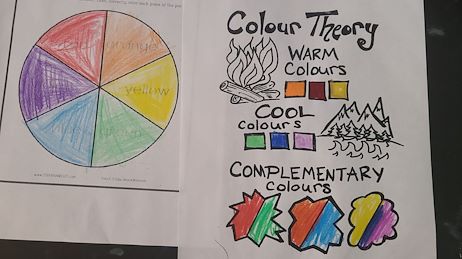 red
orange
yellow
green
blue
Colour Theory
WARM
Colours
COOL
colours
COMPLEMENTARY
Colours